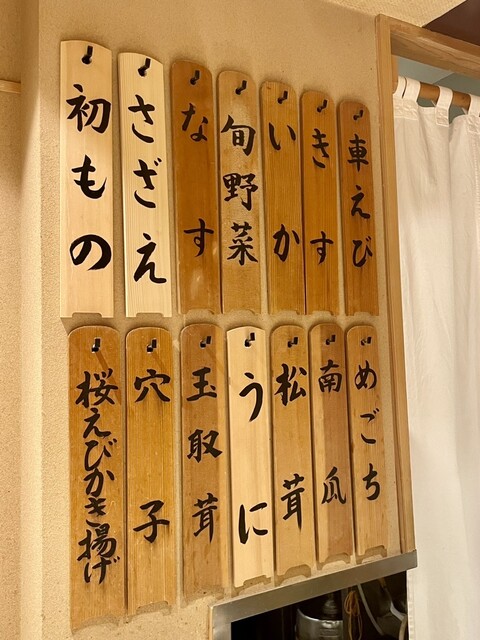 車えび
きす
いか
旬野菜
なす
さざえ
初もの
めごち
南瓜
松茸
うに
玉取茸
穴子
桜えびかき揚げ